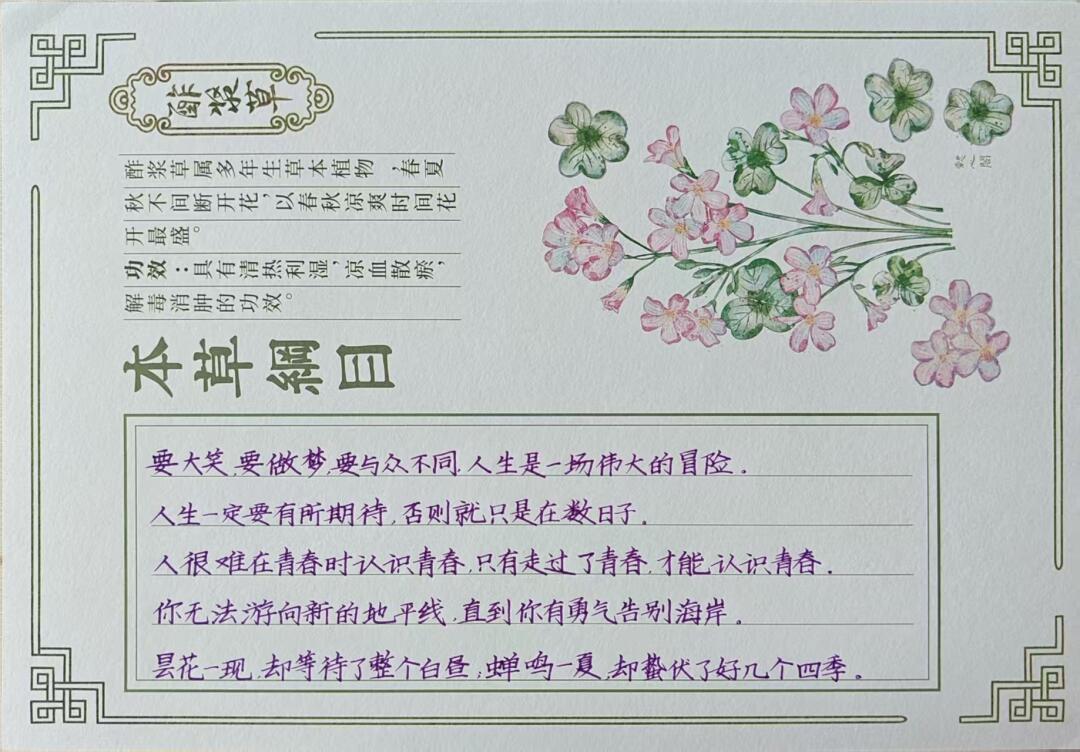 酢浆草
酢浆草属多年生草本植物，春夏
秋不间断开花，以春秋凉爽时间花
开最盛。
功效：具有清热利湿，凉血散瘀，
解毒消肿的功效。
本草綱目
要大笑,要做梦,要与众不同,人生是一场伟大的冒险.
人生一定要有所期待,否则就只是在数日子.
人很难在青春时认识青春,只有走过了青春,才能认识青春.
你无法游向新的地平线,直到你有勇气告别海岸.
昙花一现,却等待了整个白昼;蝉鸣一夏,却蛰伏了好几个四季.